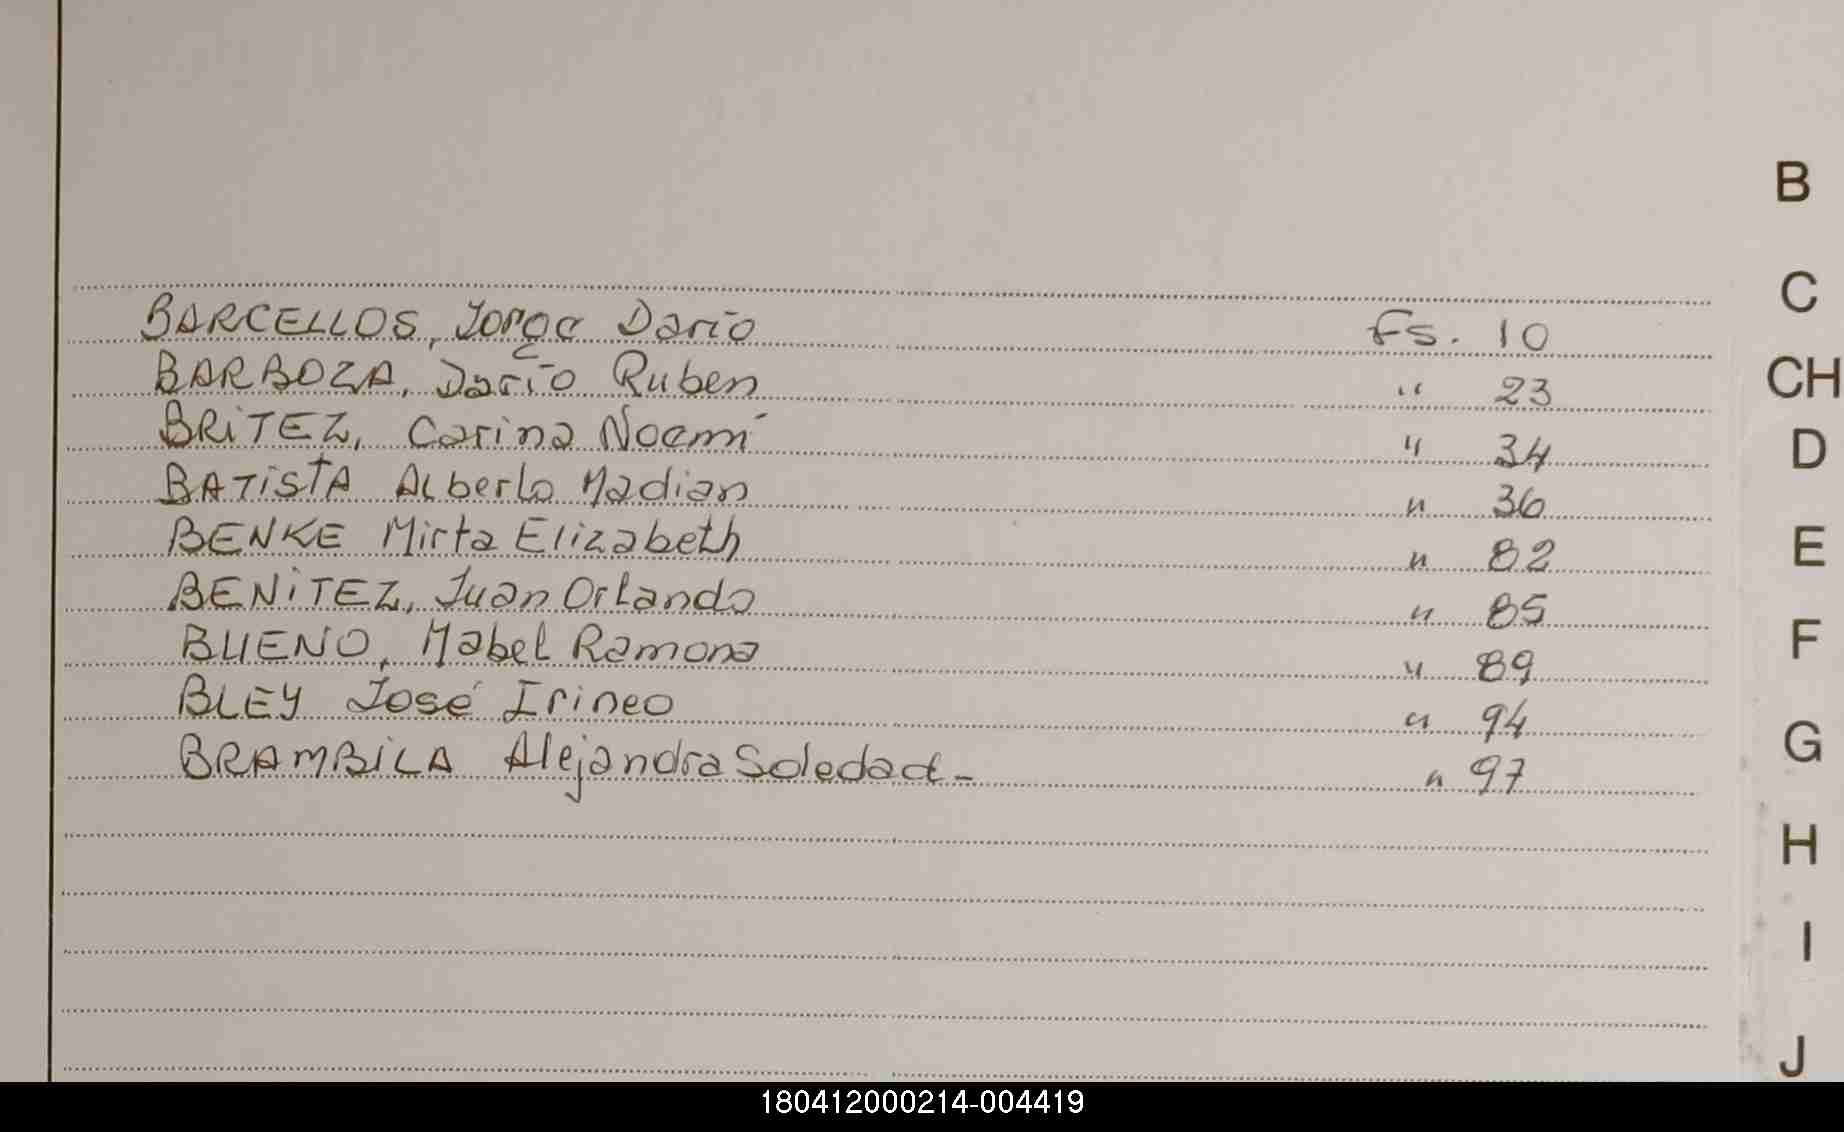 B
C
BARCELLOS, Jorge Dario Fs. 10
BARBOZA, Dario Ruben " 23
CH
BRITEZ, Carina Noemí " 34
D
BATISTA Alberto Madian " 36
BENKE Mirta Elizabeth " 82
E
BENITEZ, Juan Orlando " 85
BUENO, Mabel Ramona " 89
F
BLEY José Irineo " 94
G
BRAMBILA Alejandra Soledad- " 97
H
I
J
180412000214-004419